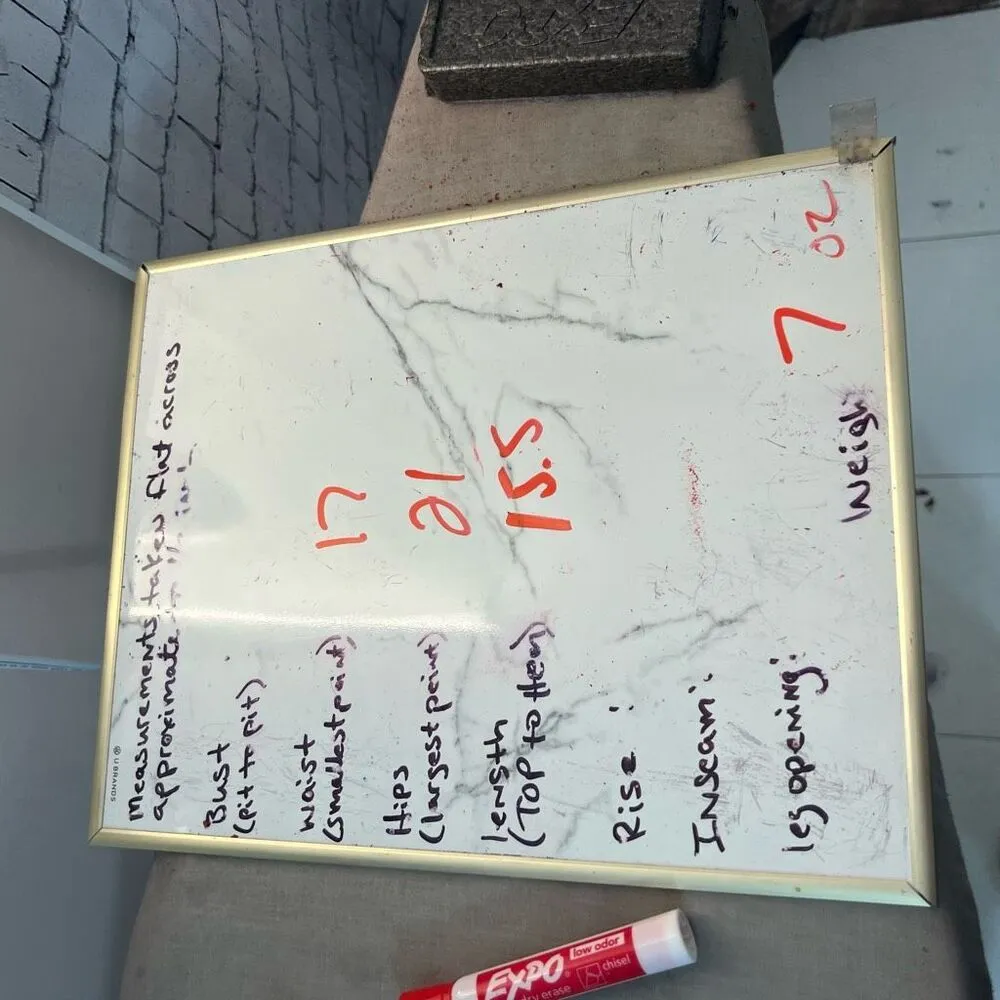 ® U BRANDS
measurements taken flat across
approximate
Bust
(pit to pit)
waist
(smallest point) 17
Hips
(largest point) 21
length
(Top to Hem) 15.5
Rise:
Inseam:
leg opening:
Weigh 7 oz
EXPO®
low odor
dry erase
chisel